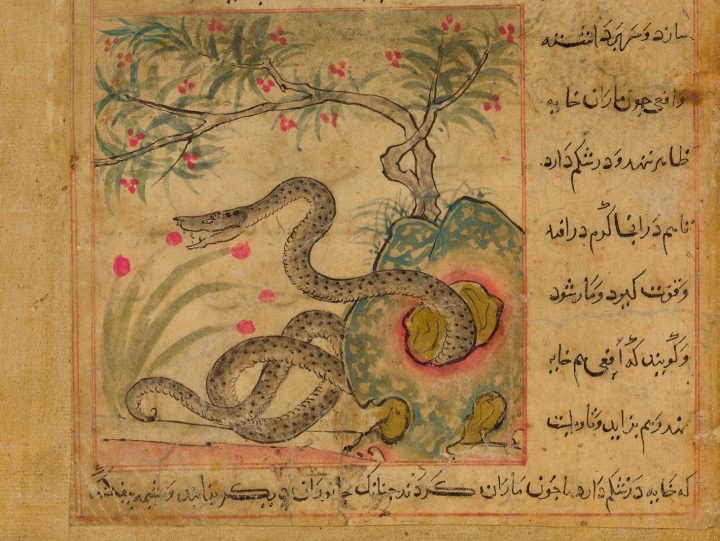 سازد و سر بر داشته
و افعی چون ماران خایه
ظاهر ننهد و در شکم دارد
تا هم در انجا گرم در افتد
و قوت گیرد و مار شود
و گویند که افعی هم خایه
نهد و هم بزاید و تاویلست
که خایه در شکم دارد تا چون ماران کردند چنانک جانوران دیگر بزایند و